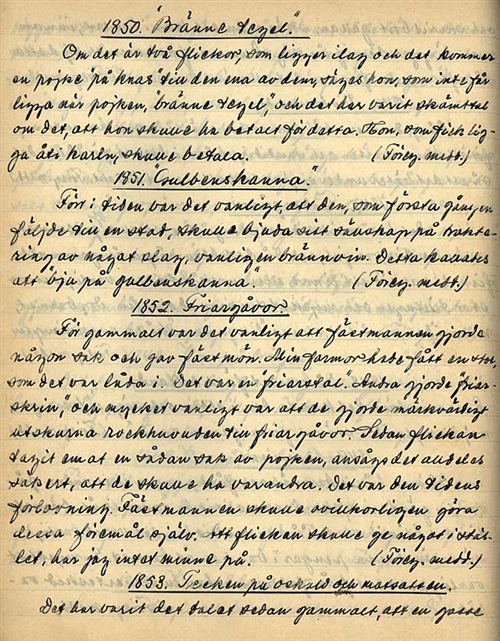 1850. "Bränne tegel."
Om det är två flickor, som ligger ilag och det kommer
en pojke "på knas" till den ena av dem, säges hon, som inte får
ligga när pojken, "bränne tegel," och det har varit skämttal
om det, att hon skulle ha betalt för detta. Hon, som fick lig-
ga åt karln, skulle betala. (Föreg. medd.)
1851. "Gulbenskanna."
Förr i tiden var det vanligt, att den, som första gången
följde till en stad, skulle bjuda sitt sällskap på trakte-
ring av något slag, vanligen brännvin. Detta kallades
att "bju på gulbenskanna." (Föreg. medd.)
1852. Friargåvor.
För gammalt var det vanligt att fästmannen gjorde
någon sak och gav fästmön. Min farmor hade fått en
som det var låda i. Det var en "friarstol". Andra gjorde "friar-
skrin," och mycket vanligt var att de gjorde märkvärdigt
utskurna rockhuvuden till friargåvor. Sedan flickan
tagit emot en sådan sak av pojken, ansågs det alldeles
säkert, att de skulle ha varandra. Det var den tidens
förlovning. Fästmannen skulle ovillkorligen göra
dessa föremål själv. Att flickan skulle ge något i stäl-
let, har jag intet minne på. (Föreg. medd.)
1853. Tecken på oskuld och motsatsen.
Det har varit det talet sedan gammalt, att en gosse